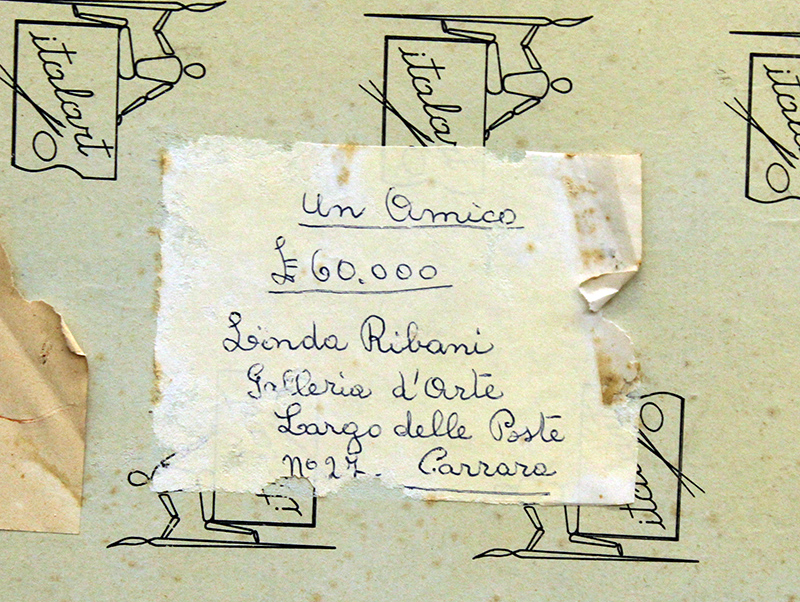 italart
itala
ita
Un Amico
₤ 60.000
Linda Ribani
Galleria d'Arte
Largo delle Poste
N° 27. Carrara
it
ital